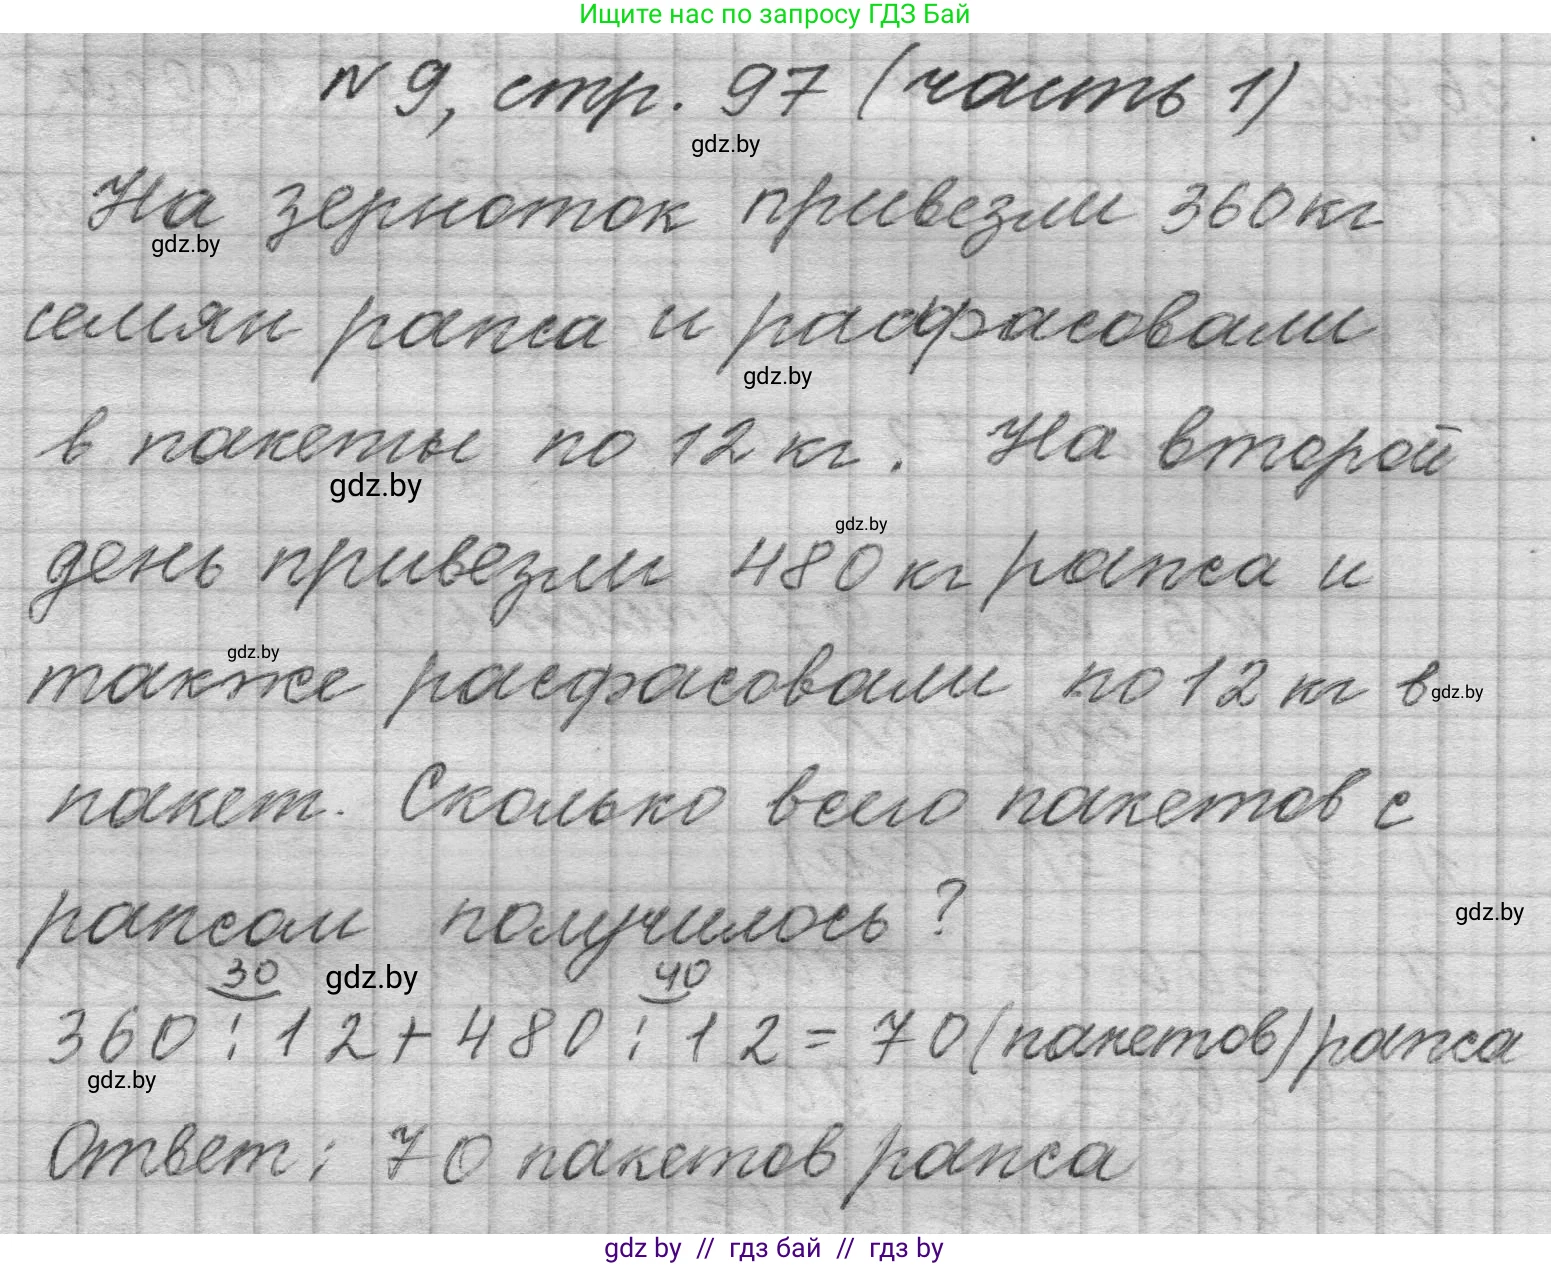 Ищите нас по запросу ГДЗ Бай
№ 9, стр. 97 (часть 1)
gdz.by
На зерноток привезли 360 кг
gdz.by
семян рапса и расфасовали
gdz.by
в пакеты по 12 кг. На второй
gdz.by
gdz.by
день привезли 480 кг рапса и
gdz.by
также расфасовали по 12 кг в
gdz.by
пакет. Сколько всего пакетов с
рапсом получилось?
gdz.by
30 gdz.by 40
360 : 12 + 480 : 12 = 70 (пакетов) рапса
gdz.by
Ответ: 70 пакетов рапса
gdz by // гдз бай // гдз by